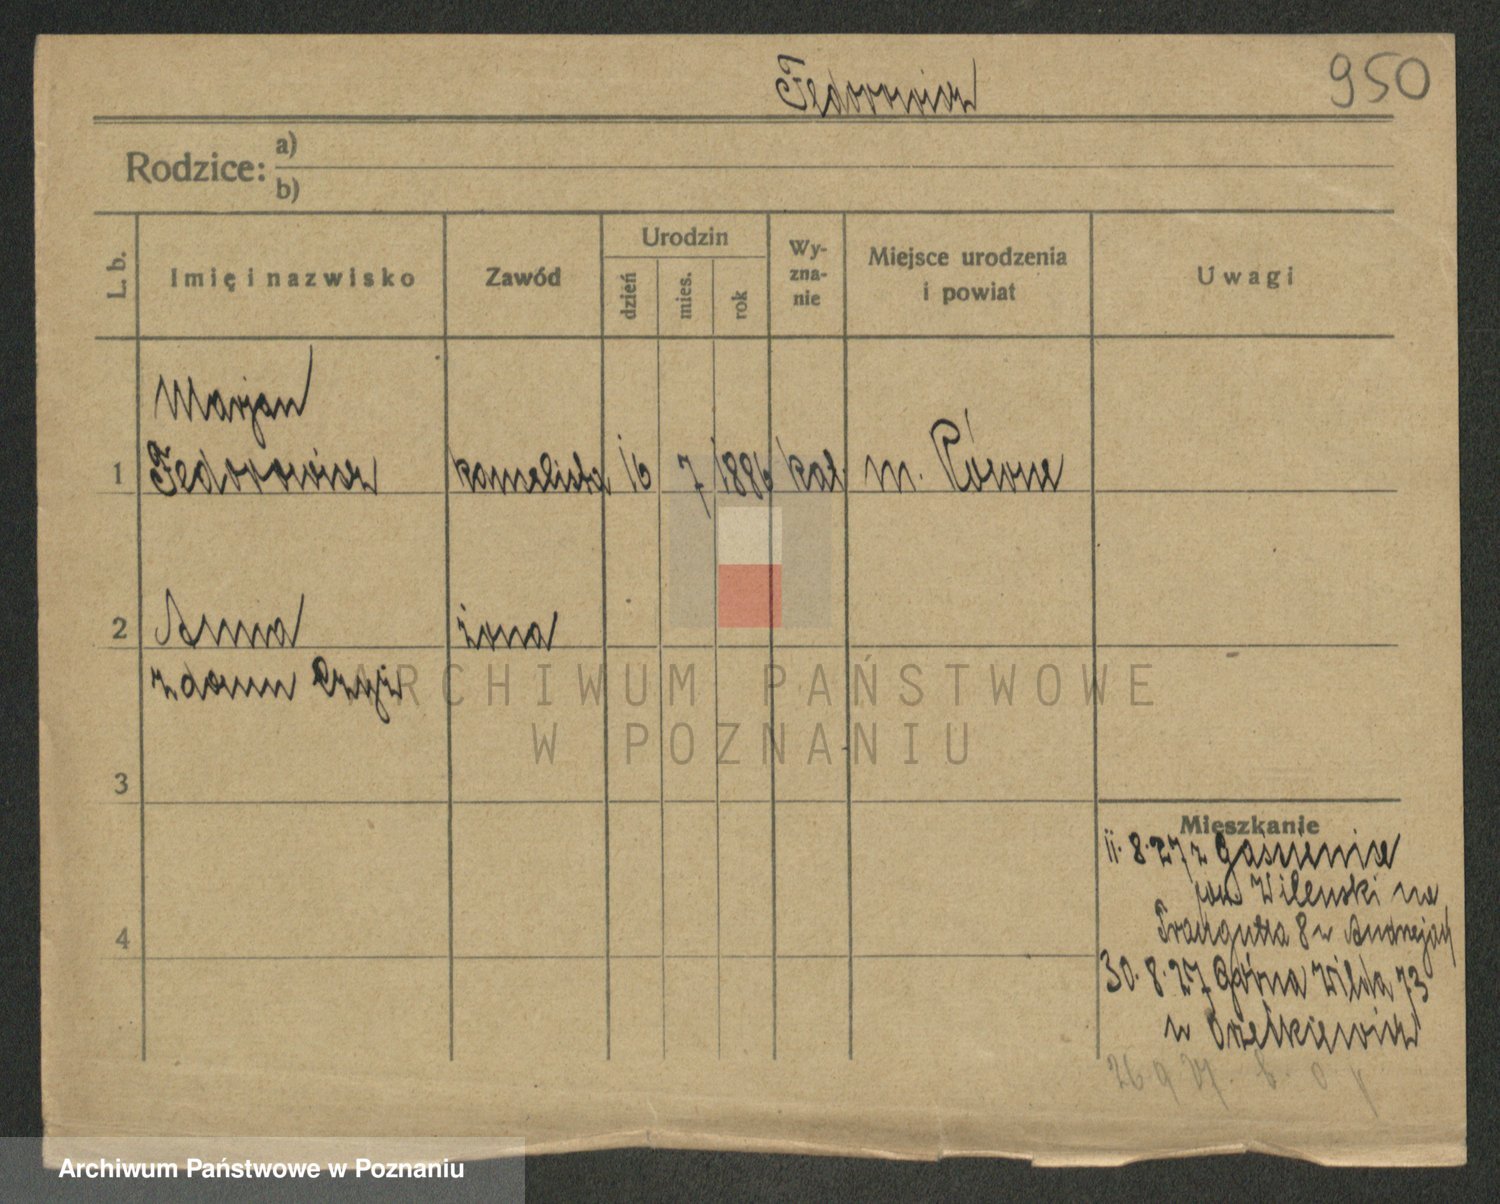 Fedorowicz
950
Rodzice:
a)
b)
L. b.
Imię i nazwisko
Zawód
Urodzin
dzień
mies.
rok
Wy-
zna-
nie
Miejsce urodzenia
i powiat
Uwagi
Marjan
1 Fedorowicz kancelista 16 7 1886 kat. m. Równe
2 Anna żona
z domu Czyż
3
4
Mieszkanie
11.8.27 z
pow Wileński na
Traugutta 8 u
30.8.27 Górna Wilda 73
u
26 9 27
ARCHIWUM PAŃSTWOWE
W POZNANIU
Archiwum Państwowe w Poznaniu